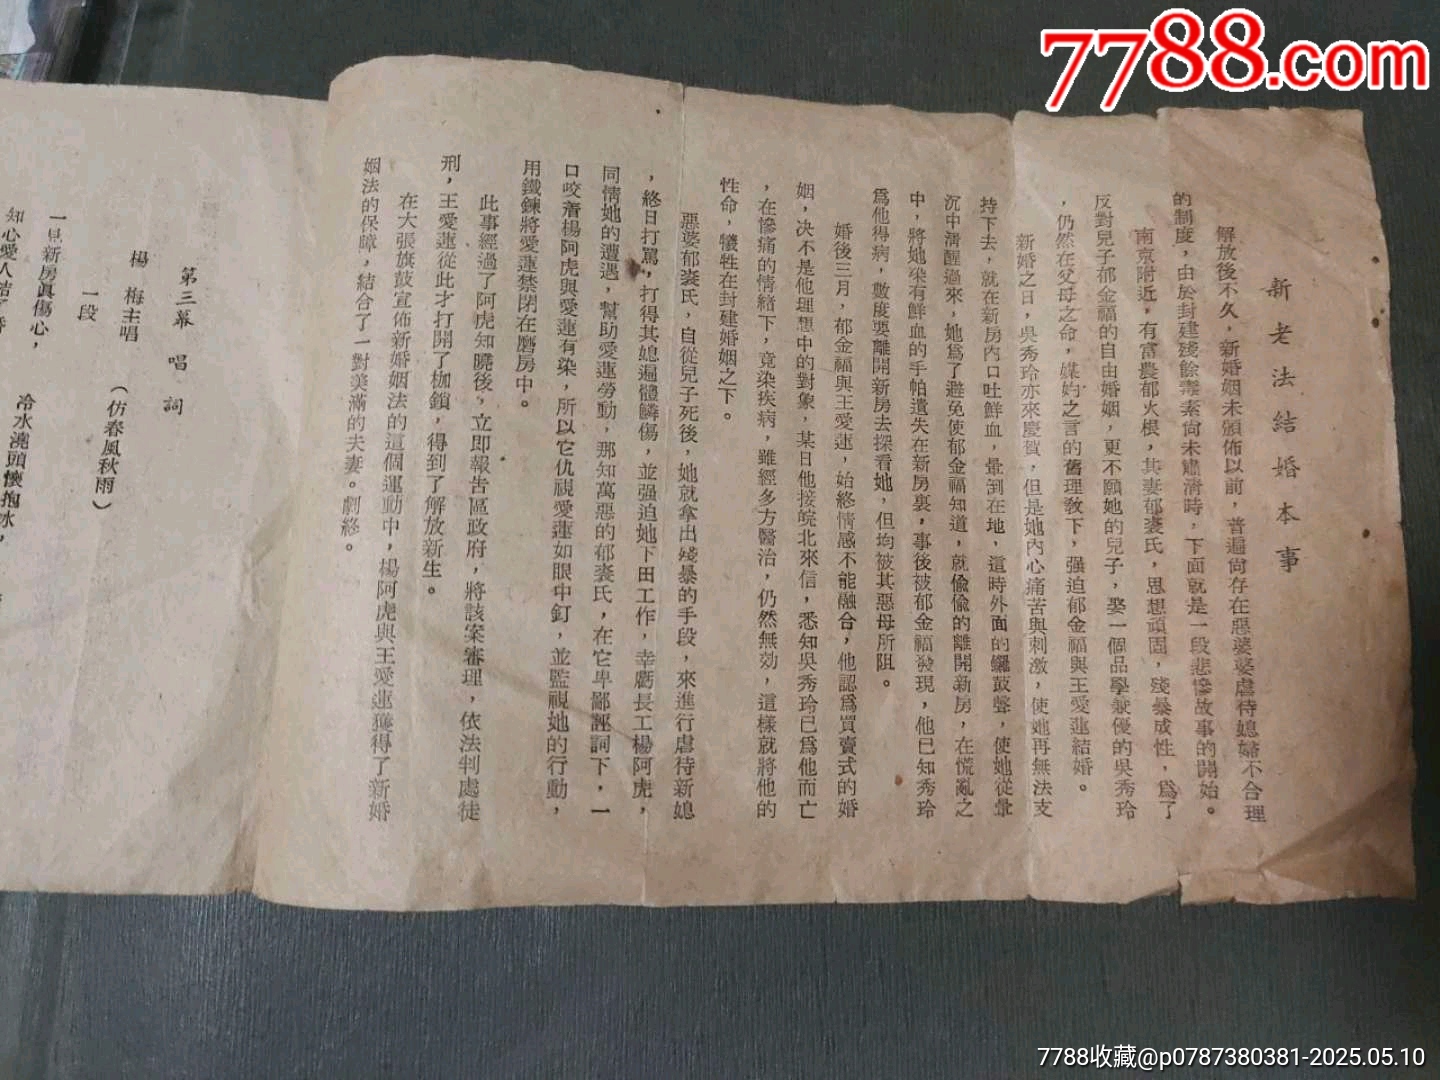 7788.com
新老法結婚本事
解放後不久，新婚姻未頒佈以前，普遍尙存在惡婆婆虐待媳婦不合理
的制度，由於封建殘餘毒素尙未肅清時，下面就是一段悲慘故事的開始。
南京附近，有富農郁火根，其妻郁裘氏，思想頑固，殘暴成性，爲了
反對兒子郁金福的自由婚姻，更不願她的兒子，娶一個品學兼優的吳秀玲
，仍然在父母之命，媒妁之言的舊理敎下，强迫郁金福與王愛蓮結婚。
新婚之日，吳秀玲亦來慶賀，但是她內心痛苦與刺激，使她再無法支
持下去，就在新房內口吐鮮血，暈到在地，這時外面的鑼鼓聲，使她從暈
沉中淸醒過來，她爲了避免使郁金福知道，就偸偸的離開新房，在慌亂之
中，將她染有鮮血的手帕遺失在新房裏，事後被郁金福發現，他已知秀玲
爲他得病，數度要離開新房去探看她，但均被其惡母所阻。
婚後三月，郁金福與王愛蓮，始終情感不能融合，他認爲買賣式的婚
姻，决不是他理想中的對象，某日他接皖北來信，悉知吳秀玲已爲他而亡
，在慘痛的情緒下，竟染疾病，雖經多方醫治，仍然無効，這樣就將他的
性命，犧牲在封建婚姻之下。
惡婆郁裘氏，自從兒子死後，她就拿出殘暴的手段，來進行虐待新媳
，終日打罵，打得其媳遍體鱗傷，並强迫她下田工作，幸虧長工楊阿虎，
同情她的遭遇，幫助愛蓮勞動，那知萬惡的郁裘氏，在它卑鄙誣詞下，一
口咬着楊阿虎與愛蓮有染，所以它仇視愛蓮如眼中釘，並監視她的行動，
用鐵鍊將愛蓮禁閉在磨房中。
此事經過了阿虎知曉後，立即報告區政府，將該案審理，依法判處徒
刑，王愛蓮從此才打開了枷鎖，得到了解放新生。
在大張旗鼓宣佈新婚姻法的這個運動中，楊阿虎與王愛蓮獲得了新婚
姻法的保障，結合了一對美滿的夫妻。劇終。
第三幕　唱　詞
楊　梅主唱　（仿春風秋雨）
一段
一見新房眞傷心，　冷水澆頭懷抱冰，
知心愛人結了婚
7788收藏@p0787380381-2025.05.10